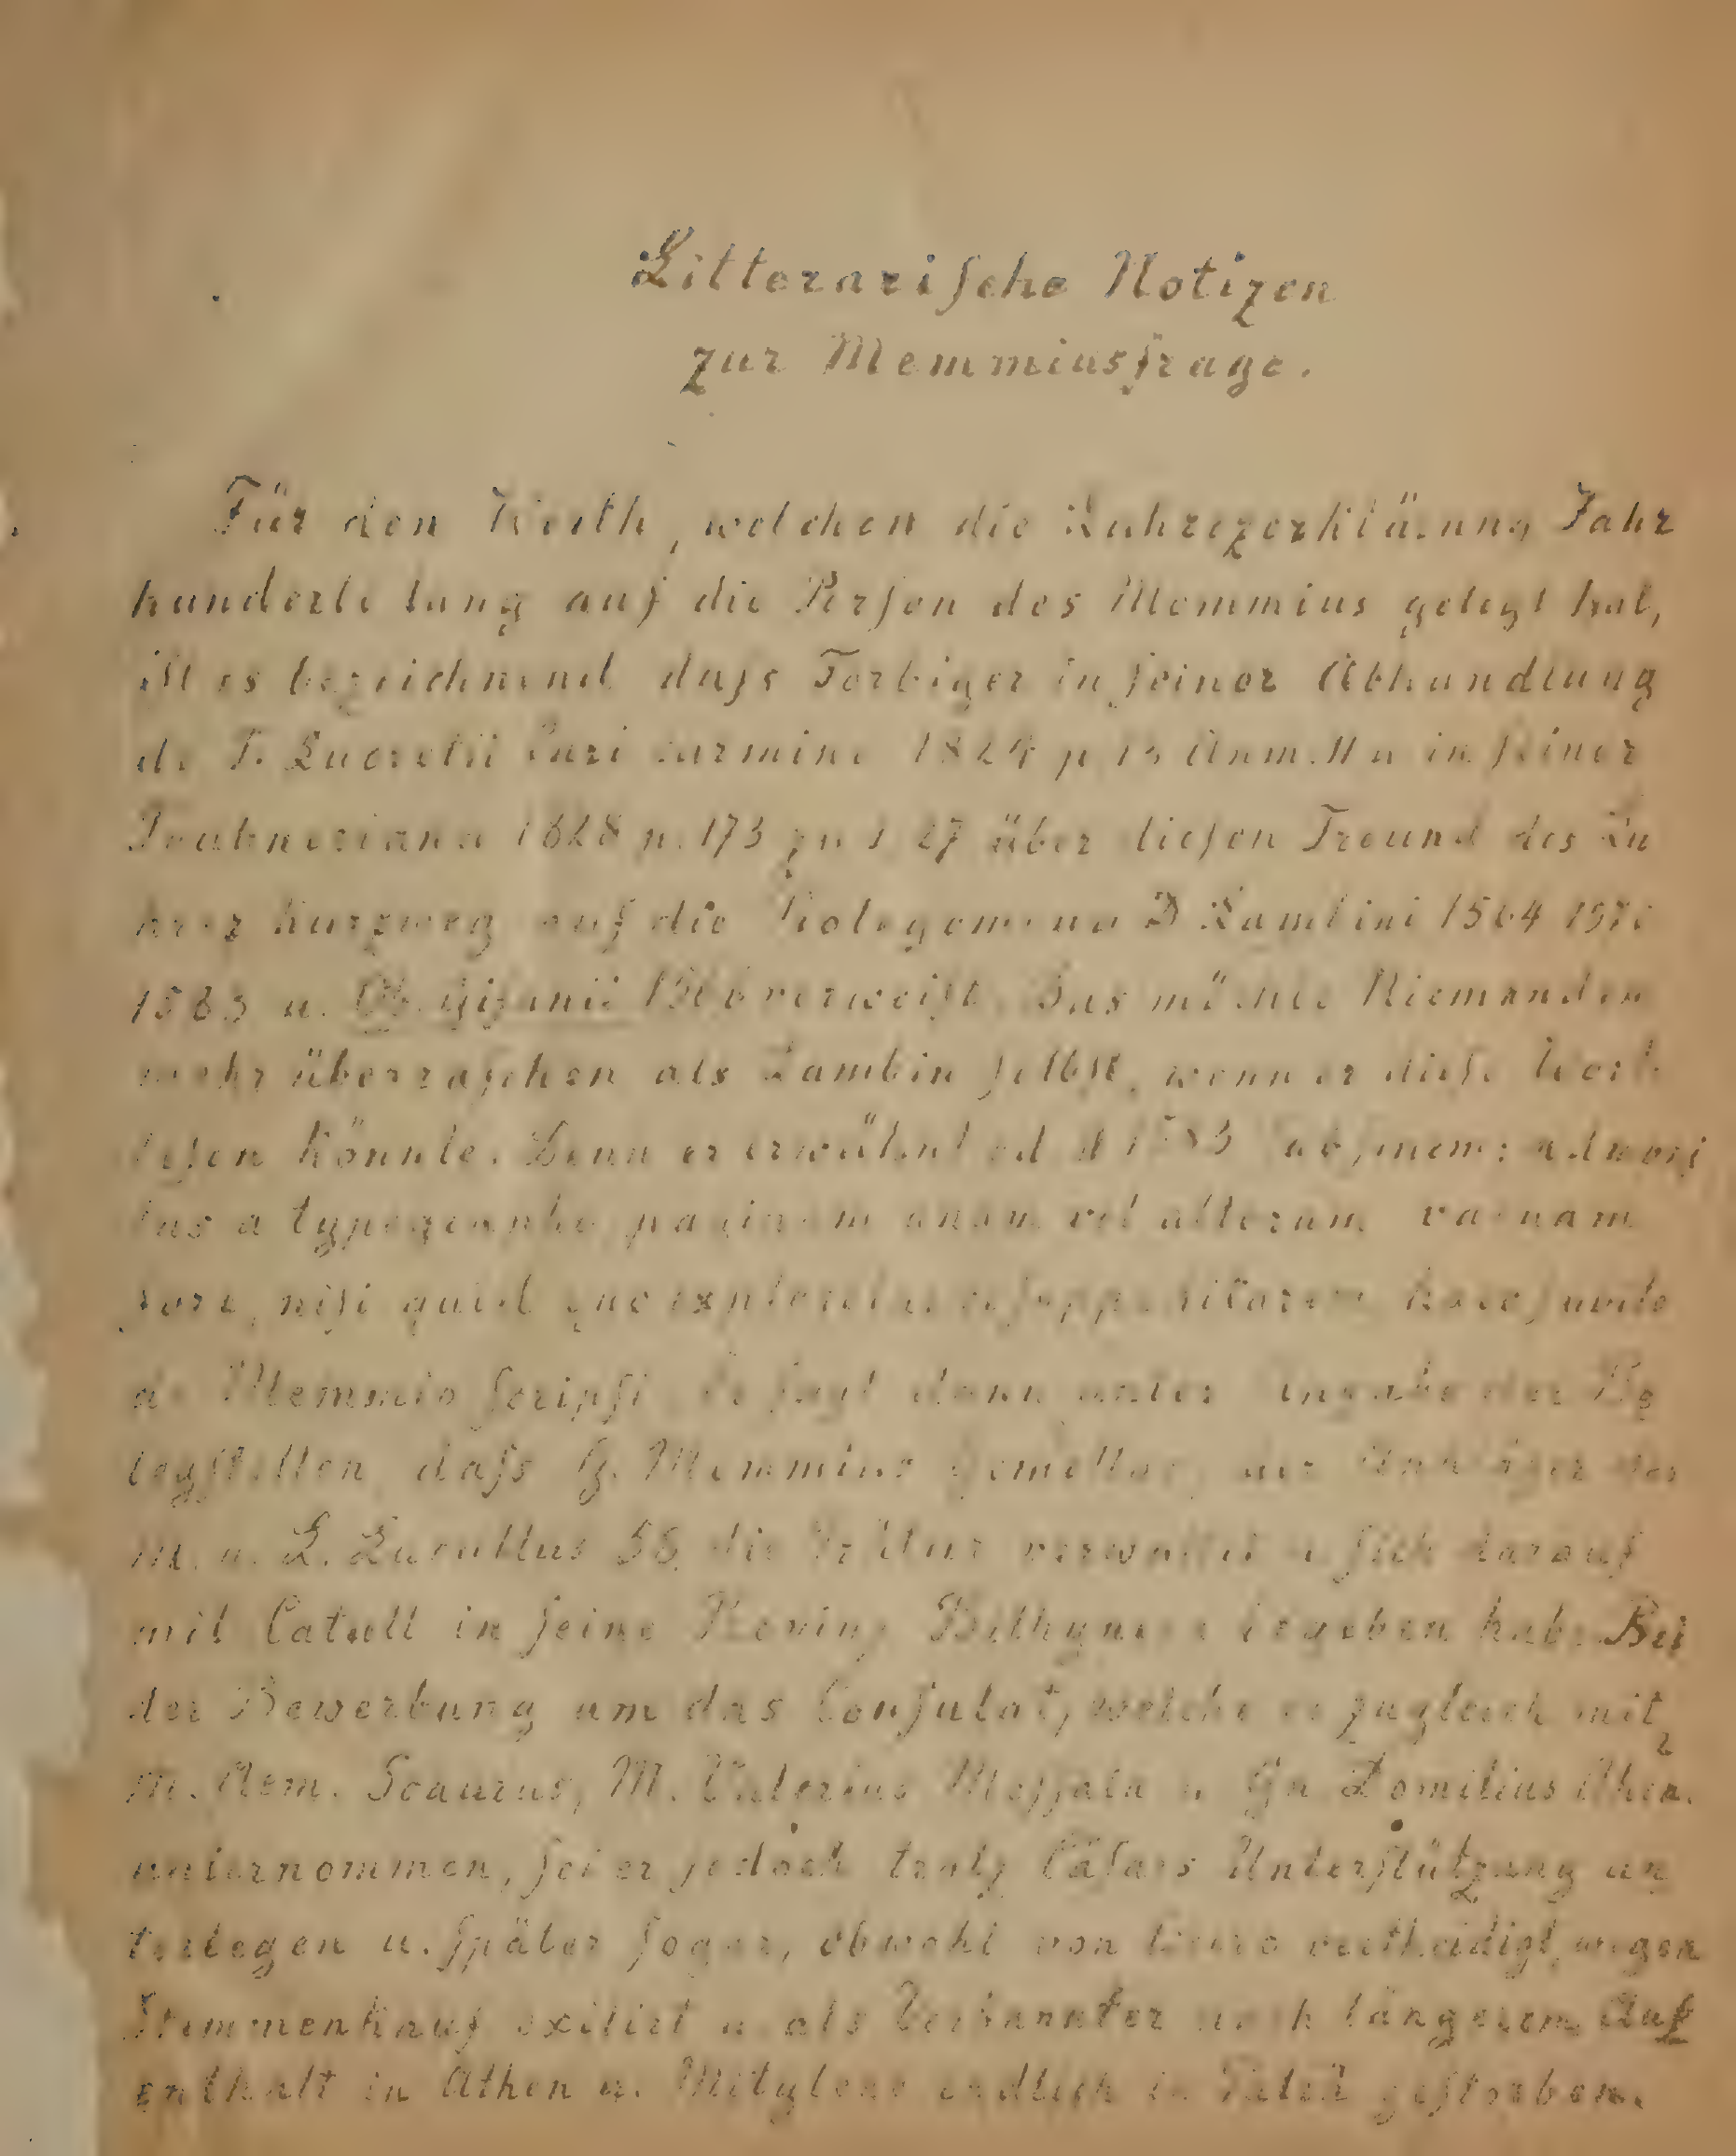 Litterariſche Notizen
zur Memmiusfrage.
Für den Werth, welchen die Lukrezerklärung Jahr
hunderte lang auf die Perſon des Memmius gelegt hat,
iſt es bezeichnend daſs Forbiger in ſeiner Abhandlung
de T. Lucretii Cari carmine 1824 p 13 Anm. 11 u in ſeiner
Teubneriana 1828 p. 173 zu I 27 über dieſen Freund des Lu
krez kurzweg auf die Prolegomena D Lambini 1564 1570
1583 u. Ob. Gifanii 1566 verweiſt. Das möchte Niemanden
mehr überraſchen als Lambin ſelbſt, wenn er dieſe Worte
leſen könnte. Denn er erwähnt
tus a typographo paginam unam vel alteram vacuam
fore, niſi quid
de Memmio ſcripſi. Er ſagt dann unter Angabe der Be
legſtellen daſs G. Memmius Gemellus, der Ankläger des
M. u. L. Lucullus 58 die Prätur verwaltet u ſich darauf
mit Catull in ſeine Provinz Bithynien begeben habe Bei
der Bewerbung um das Conſulat, welche er zugleich mit
M. Aem. Scaurus, M. Valerius Meſſala u Gn Domitius Ahen.
unternommen, ſei er jedoch trotz Cäſars Unterſtützung un
terlegen u. ſpäter ſogar, obwohl von Cicero vertheidigt, wegen
Stimmenkauf exilirt u als Verbannter nach längerem Auf
enthalt in Athen u. Mitylene endlich in geſtorben.